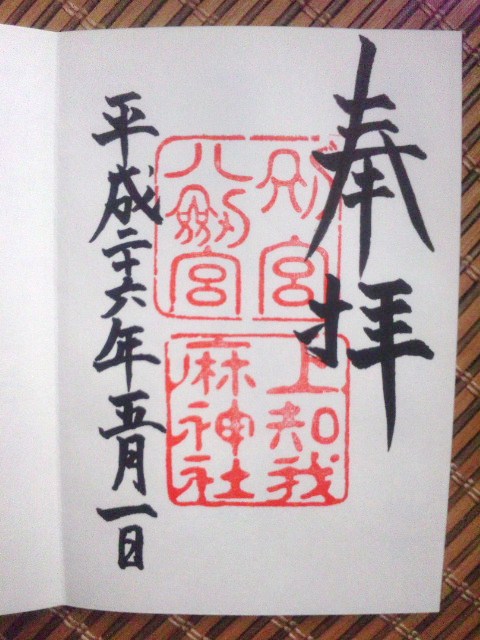 奉拝
別宮
八剱宮
上知我
麻神社
平成二十六年五月一日